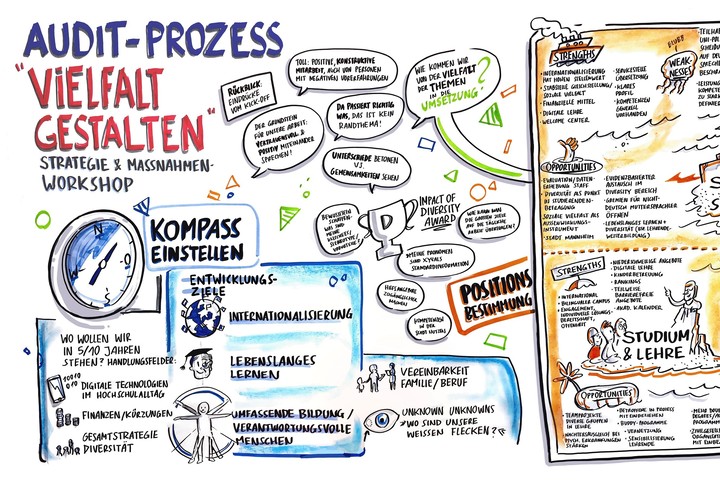 AUDIT-PROZESS
"VIELFALT
GESTALTEN"
STRATEGIE & MASSNAHMEN-
WORKSHOP
RÜCKBLICK:
EINDRÜCKE
VOM KICK-OFF
TOLL: POSITIVE, KONSTRUKTIVE
MITARBEIT, AUCH VON PERSONEN
MIT NEGATIVEN VORERFAHRUNGEN
DER GRUNDSTEIN
FÜR UNSERE ARBEIT:
VERTRAUENSVOLL &
POSITIV MITEINANDER
SPRECHEN!
DA PASSIERT RICHTIG
WAS, DAS IST KEIN
RANDTHEMA!
UNTERSCHIEDE BETONEN
V.S.
GEMEINSAMKEITEN SEHEN
WIE KOMMEN WIR
VON DER VIELFALT
DER THEMEN
IN DIE
UMSETZUNG?
KOMPASS
EINSTELLEN
N
S
IMPACT OF
DIVERSITY
AWARD
D
BEWUSSTSEIN
SCHAFFEN:
WAS SIND
MEINE
WIE KANN MAN
DIE GANZEN ZIELE
IN
ARBEIT UNTERBRINGEN?
SIND XYFALS
STANDARDINFORMATION
KOMPETENZEN
IN DER
STADT NUTZEN
POSITIONS
BESTIMMUNG
ENTWICKLUNGS-
ZIELE
INTERNATIONALISIERUNG
LEBENSLANGES
LERNEN
UMFASSENDE BILDUNG/
VERANTWORTUNGSVOLLE
MENSCHEN
WO WOLLEN WIR
IN 5/10 JAHREN
STEHEN? HANDLUNGSFELDER:
DIGITALE TECHNOLOGIEN
IM HOCHSCHULALLTAG
FINANZEN/KÜRZUNGEN
GESAMTSTRATEGIE
DIVERSITÄT
VEREINBARKEIT
FAMILIE/BERUF
UNKNOWN UNKNOWNS
>WO SIND UNSERE
WEISSEN FLECKEN?<
STRENGTHS
•INTERNATIONALISIERUNG
MIT HOHEM STELLENWERT
•STABSSTELLE GLEICHSTELLUNG/
SOZIALE VIELFALT
•FINANZIELLE MITTEL
•DIGITALE LEHRE
WELCOME CENTER
•SERVICESTELLE
ÜBERSETZUNG
•KLARES
PROFIL
•KOMPETENZEN
GENERELL
VORHANDEN
WEAK-
NESSES
OPPORTUNITIES
•EVALUATION/DATEN-
ERHEBUNG STAFF
•DIVERSITY ALS PUNKT
IN STUDIERENDEN-
BEFRAGUNG
•SOZIALE VIELFALT ALS
AUSWIRKUNGS-
INSTRUMENT
•STADT MANNHEIM
•EVIDENZBASIERTER
AUSTAUSCH IM
DIVERSITY BEREICH
•GREMIEN FÜR NICHT-
DEUTSCH MUTTERSPRACHLER
ÖFFNEN
•LEBENSLANGES LERNEN +
DIVERSITY (EV. LEHRENDE-
WEITERBILDUNG)
STRENGTHS
•INTERNATIONAL
•BILINGUALER CAMPUS
•ENGAGEMENT,
INDIVIDUELLE LÖSUNGS-
BEREITSCHAFT,
OFFENHEIT
•NIEDERSCHWELLIGE ANGEBOTE
•DIGITALE LEHRE
•KINDERBETREUUNG
•RANKINGS
•TEILWEISE
BARRIEREFREIE
ANGEBOTE
•AKAD. KALENDER
STUDIUM
& LEHRE
OPPORTUNITIES
•TEAMPROJEKTE
DIVERSE GRUPPEN
IN LEHRE
•NACHTEILSAUSGLEICH BEI
PSYCH. ERKRANKUNGEN
STÄRKEN
•BETROFFENE IN PROZESS
MIT EINBEZIEHEN
•BUDDY-PROGRAMME
•VERNETZUNG
•SENSIBILISIERUNG
LEHRENDE